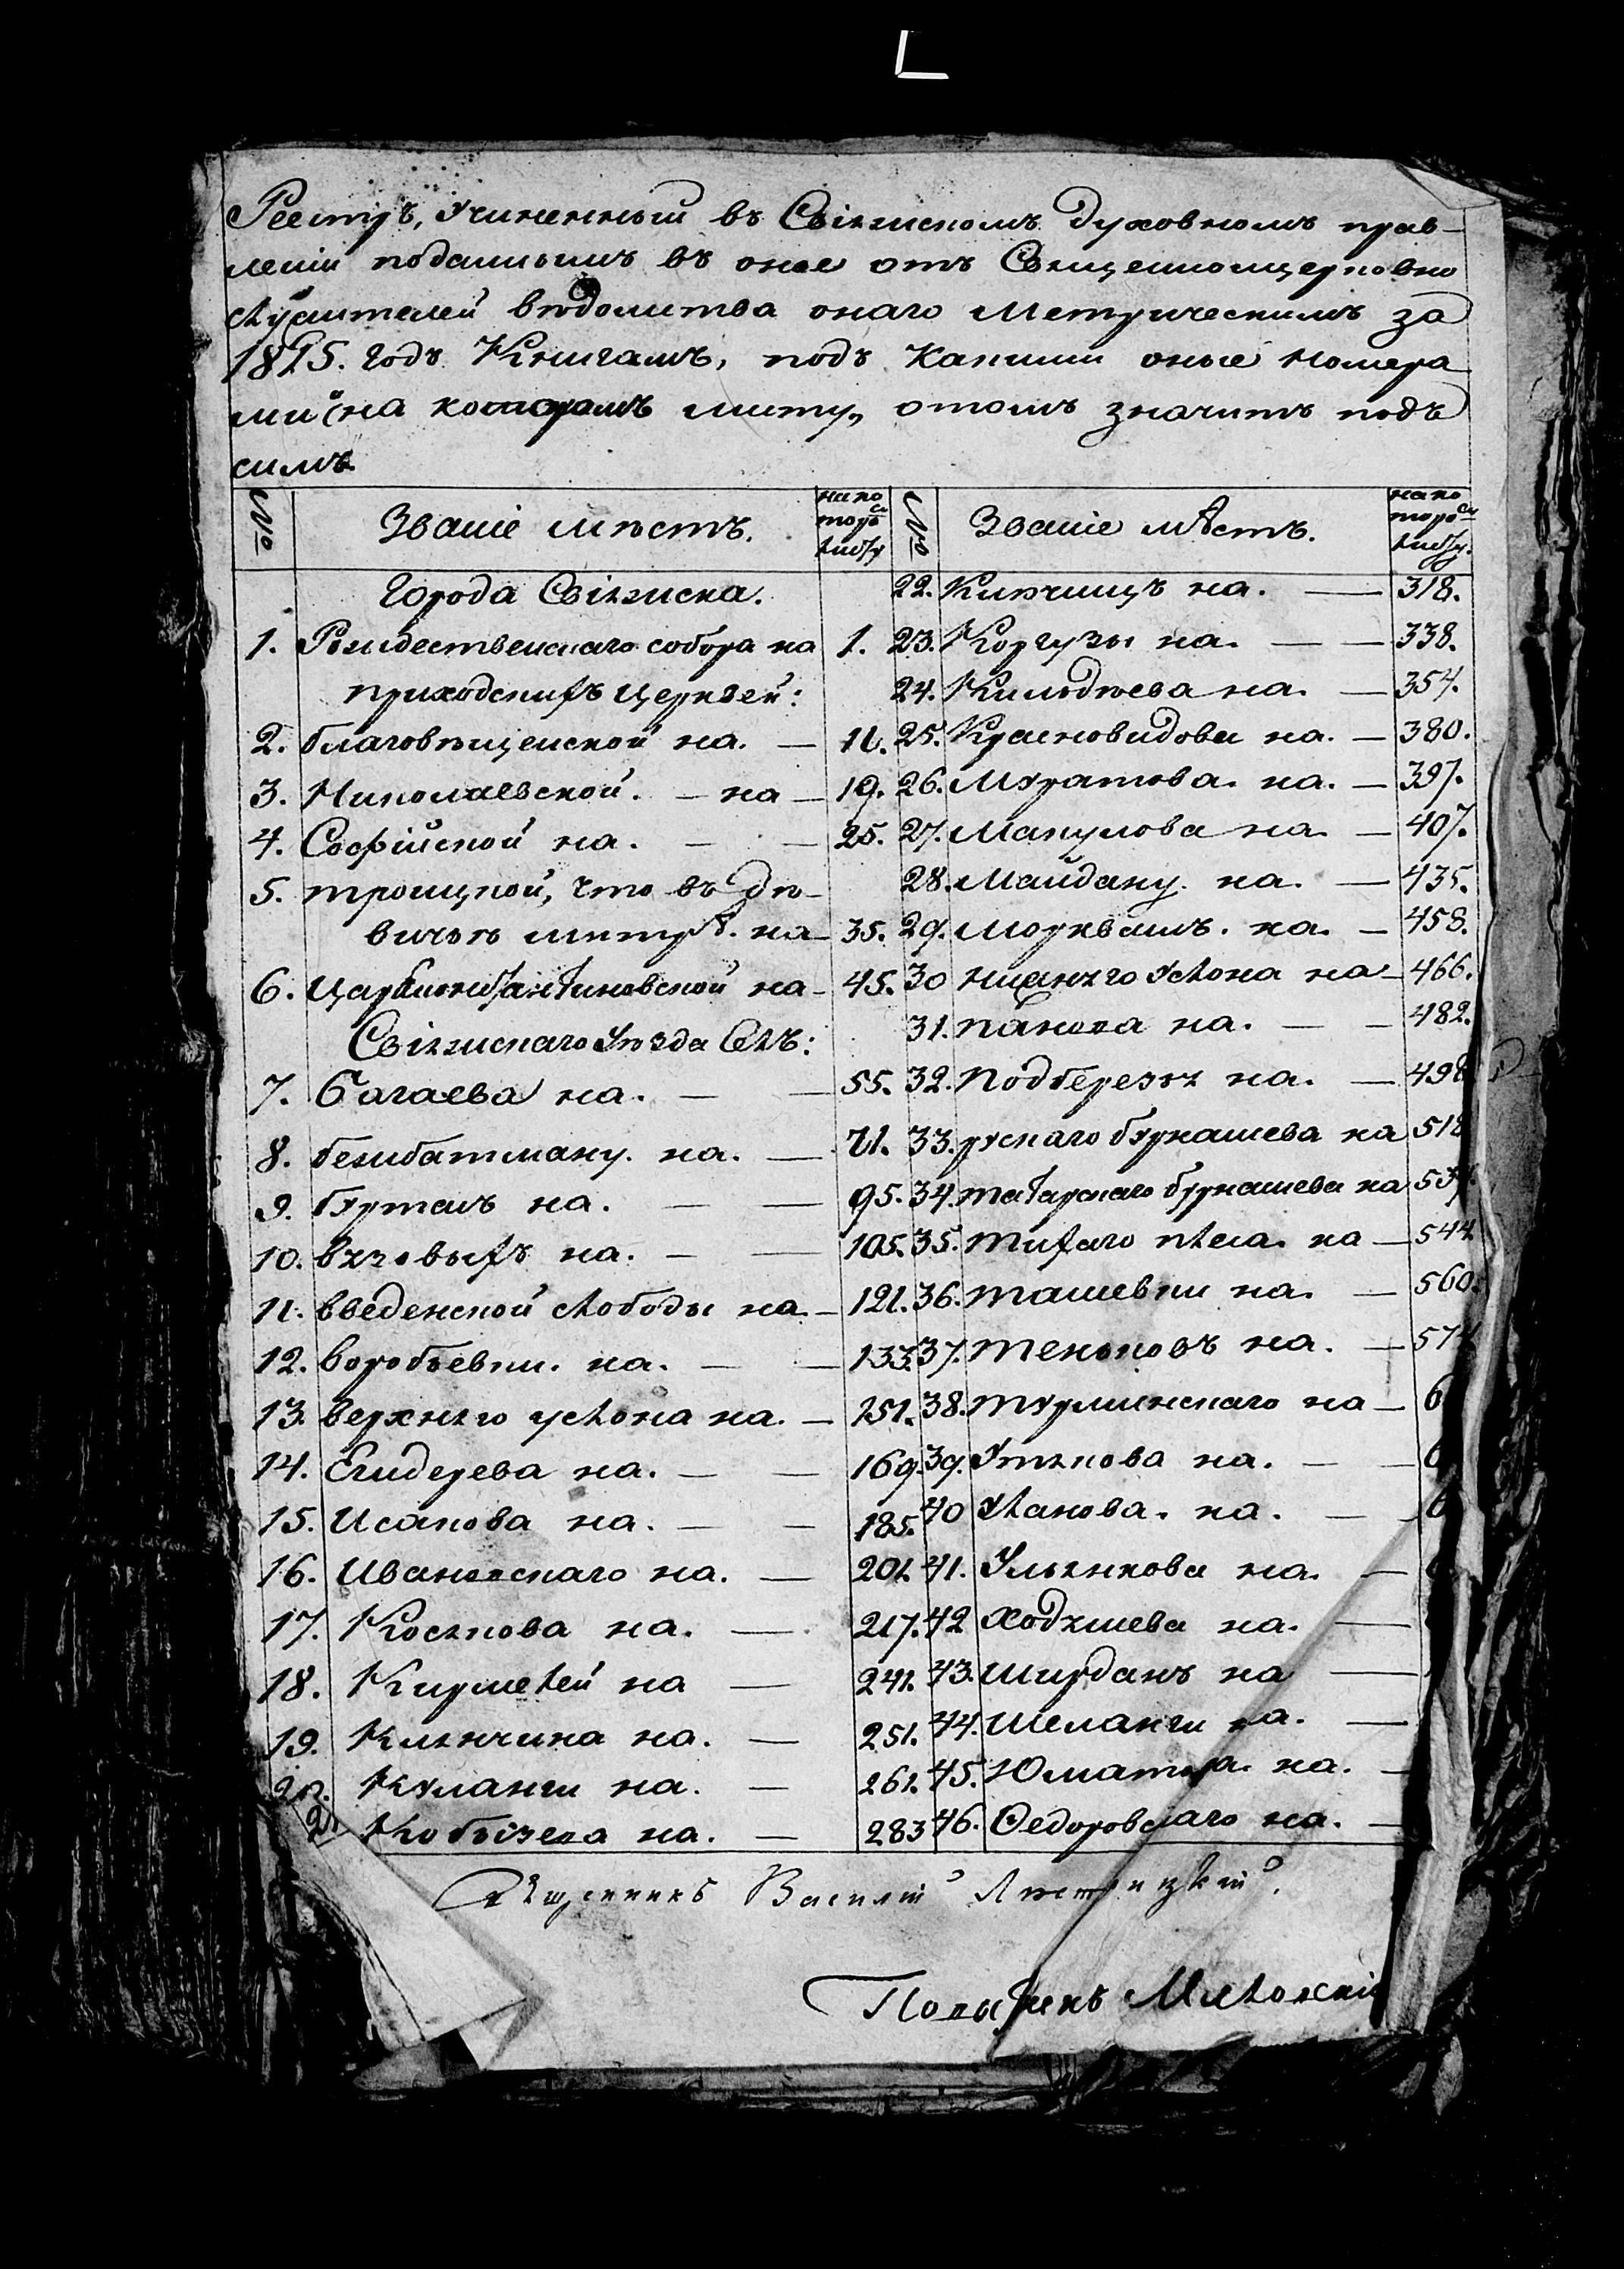 Реестръ, Учиненный въ Свіяжскомъ Духовномъ прав-
леніи поданнымъ въ оное отъ Священноцерковно
служителей вѣдомства онаго Метрическимъ за
1815. Годъ Книгамъ, подъ какими оные номера
ми и на которомъ листу, отомъ значитъ подъ
симъ.
№ Званіе мѣстъ. на ко торомъ листу
Города Свіяжска.
1. Рождественскаго собора на 1.
приходскихъ Церквей:
2. благовѣщенской на. — 11.
3. Николаевской. — на — 19.
4. Софійской на. — — 25.
5. троицкой, что въ Дѣ-
вичьѣ мнтрѣ. на — 35.
6. Царяконстантиновской на — 45.
Свіяжскаго Уѣзда Селъ:
7. Багаева на. — — 55.
8. безжбатману. на. — 71.
9. буртасъ на. — — 95.
10. вязовыхъ на. — — 105.
11. введенской слободы на. — 121.
12. воробьевки. на. — — 133.
13. верхняго услона на. — 151.
14. Егидерева на. — — 169.
15. Исакова на. — — 185.
16. Ивановскаго на. — 201.
17. Косякова на. — 217.
18. Кирмелей на — 241.
19. Клянчина на. — 251.
20. Куланги на. — 261.
21. Кобызева на. — 283
№ Званіе мѣстъ. на ко торомъ листу.
22. Кипчищъ на. — 318.
23. Коргузы на. — — 338.
24. Кильдѣева на. — 354.
25. Красновидова на. — 380.
26. Муратова. на. — 397.
27. Макулова на — 407.
28. Майдану. на. — 435.
29. Моркваш. на. — 458.
30 нижняго Услона на — 466.
31. панова на. — — 482.
32. подберезья на. — 498
33. рускаго бурнашева на 518
34. татарскаго бурнашева на 534.
35. тихаго плеса. на — 544
36. ташевки на. — 560.
37. теньковъ на. — 574
38. турминскаго на — 6
39. Утякова на. — — 6
40 Уланова. на. — 6
41. Ульянкова на. —
42 Ходяшева на. —
43. Ширданъ на —
44. Шеланги на. —
45. Юматова. на. —
46. Ѳедоровскаго на. —
Священникъ Василій